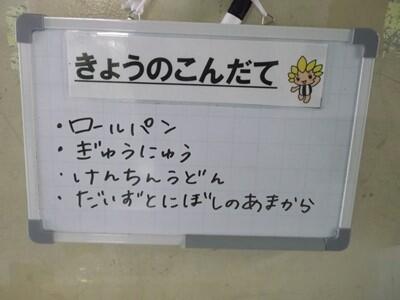 きょうのこんだて
・ロールパン
・ぎゅうにゅう
・けんちんうどん
・だいずとにぼしのあまから